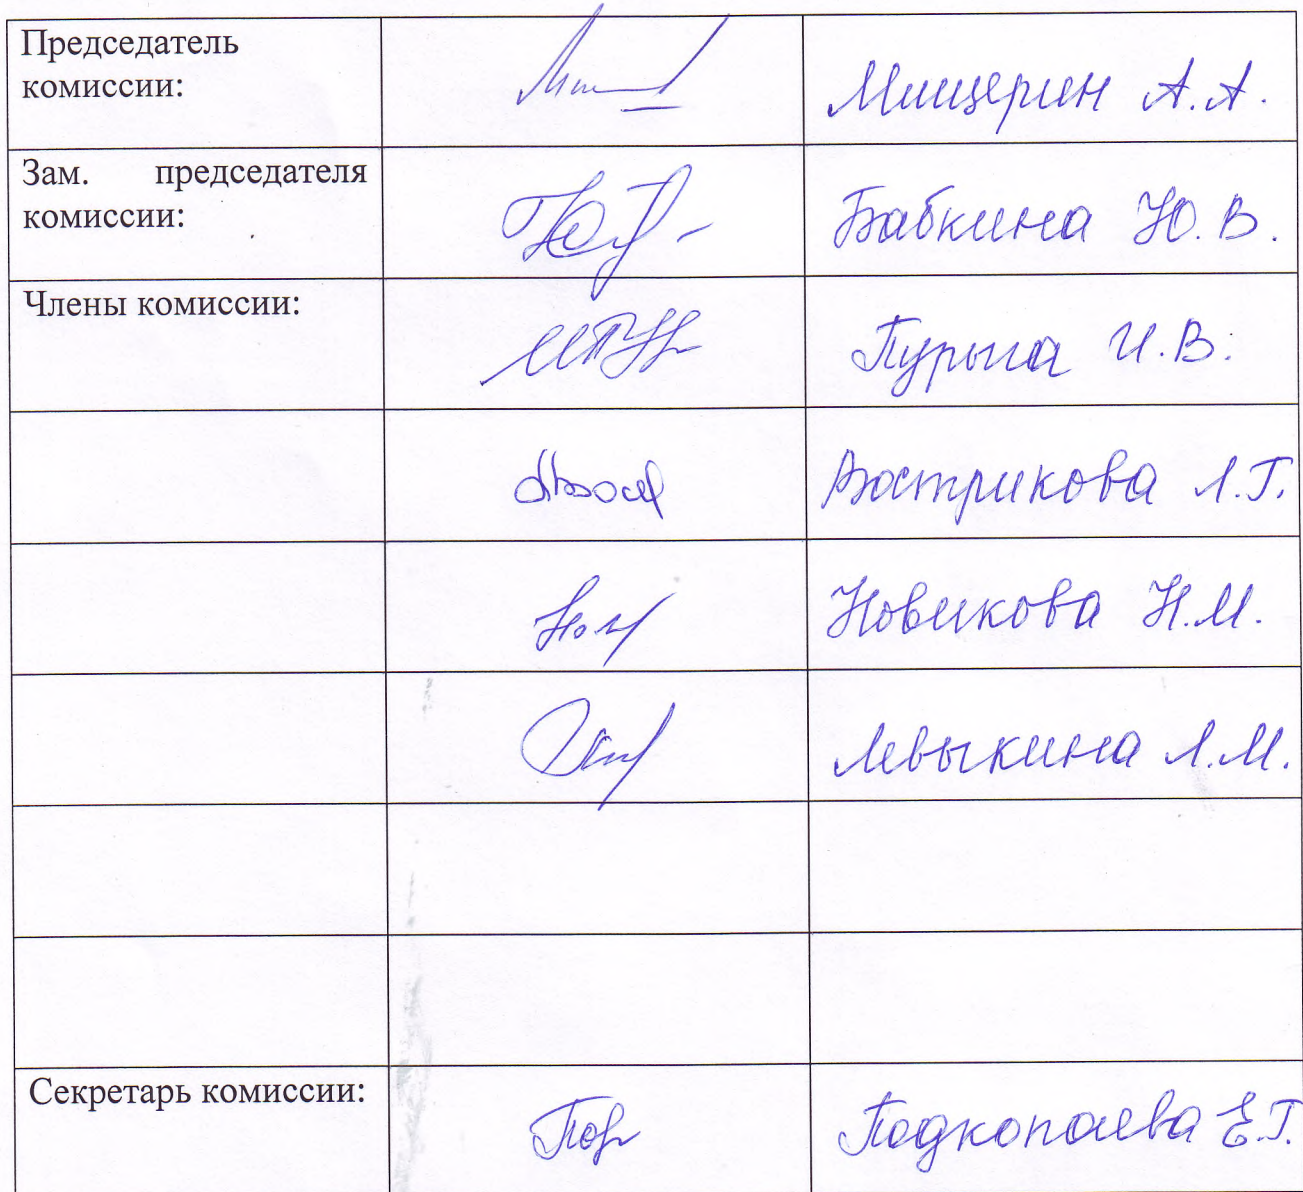 Председатель
комиссии:
Мищерин А.А.
Зам. председателя
комиссии:
Бабкина Ю.В.
Члены комиссии:
Пурыга И.В.
Вострикова Л.Г.
Новикова Н.М.
Левыкина Л.М.
Секретарь комиссии:
Подкопаева Е.Г.